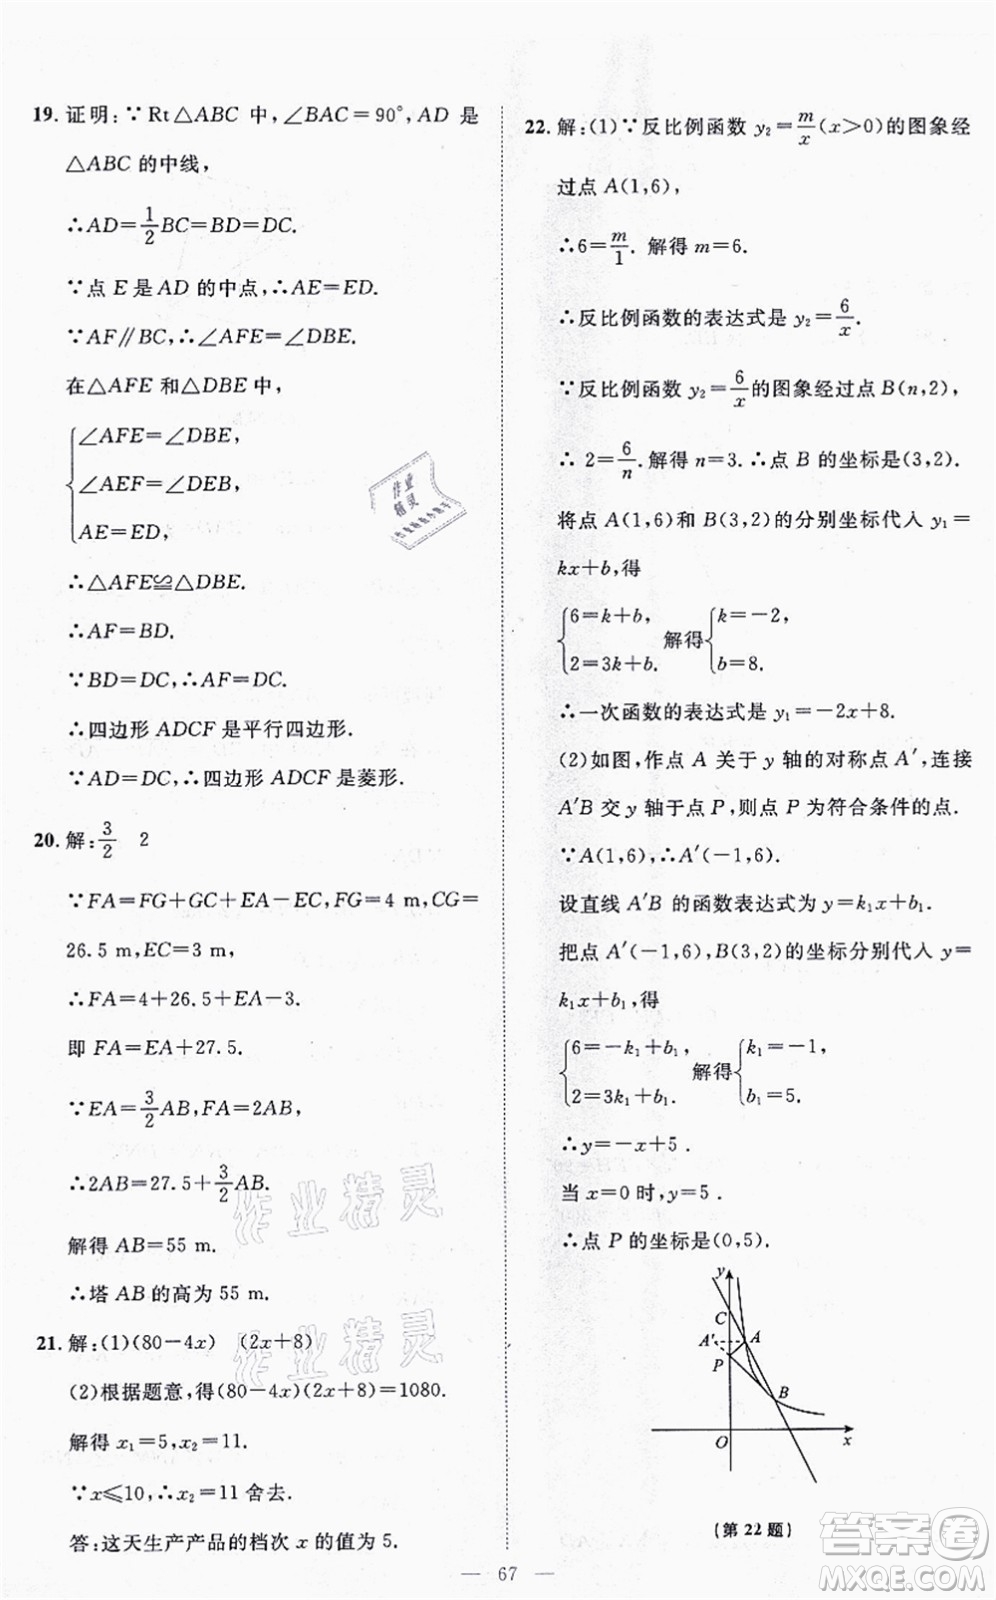 19. 证明:∵Rt△ABC 中,∠BAC=90°,AD 是
△ABC 的中线,
∴AD=1/2BC=BD=DC.
∵点 E 是 AD 的中点,∴AE=ED.
∵AF∥BC,∴∠AFE=∠DBE.
在△AFE 和△DBE 中,
∠AFE=∠DBE,
∠AEF=∠DEB,
AE=ED,
∴△AFE≌△DBE.
∴AF=BD.
∵BD=DC,∴AF=DC.
∴四边形 ADCF 是平行四边形.
∵AD=DC,∴四边形 ADCF 是菱形.
20. 解:3/2 2
∵FA=FG+GC+EA-EC,FG=4 m,CG=
26.5 m,EC=3 m,
∴FA=4+26.5+EA-3.
即 FA=EA+27.5.
∵EA=3/2AB,FA=2AB,
∴2AB=27.5+3/2AB.
解得 AB=55 m.
∴塔 AB 的高为 55 m.
21. 解:(1)(80-4x) (2x+8)
(2)根据题意,得(80-4x)(2x+8)=1080.
解得 x₁=5,x₂=11.
∵x≤10,∴x₂=11 舍去.
答:这天生产产品的档次 x 的值为 5.
22. 解:(1)∵反比例函数 y₂=m/x(x>0)的图象经
过点 A(1,6),
∴6=m/1. 解得 m=6.
∴反比例函数的表达式是 y₂=6/x.
∵反比例函数 y₂=6/x的图象经过点 B(n,2),
∴ 2=6/n.解得 n=3.∴点 B 的坐标是(3,2).
将点 A(1,6)和 B(3,2)的分别坐标代入 y₁=
kx+b,得
6=k+b, 解得 k=-2,
2=3k+b. b=8.
∴一次函数的表达式是 y₁=-2x+8.
(2)如图,作点 A 关于 y 轴的对称点 A′,连接
A′B 交 y 轴于点 P,则点 P 为符合条件的点.
∵A(1,6),∴A′(-1,6).
设直线 A′B 的函数表达式为 y=k₁x+b₁.
把点 A′(-1,6),B(3,2)的坐标分别代入 y=
k₁x+b₁,得
6=-k₁+b₁, 解得 k₁=-1,
2=3k₁+b₁. b₁=5.
∴y=-x+5 .
当 x=0 时,y=5 .
∴点 P 的坐标是(0,5).
y
C
A′ A
P
B
O x
(第 22 题)
67
作业精灵
作业精灵
作业
精灵
答案圈
MXQE.COM